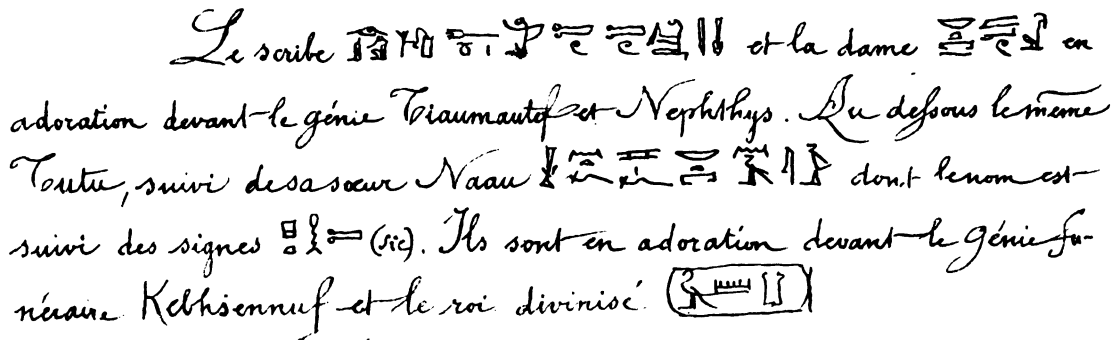 Le scribe et la dame en
adoration devant le génie Tiaumautef et Nephthys. Au dessous le même
Tutu, suivi de sa sœur Naau dont le nom est
suivi des signes (sic). Ils sont en adoration devant le génie fu-
néraire Kebhsennuf et le roi divinisé